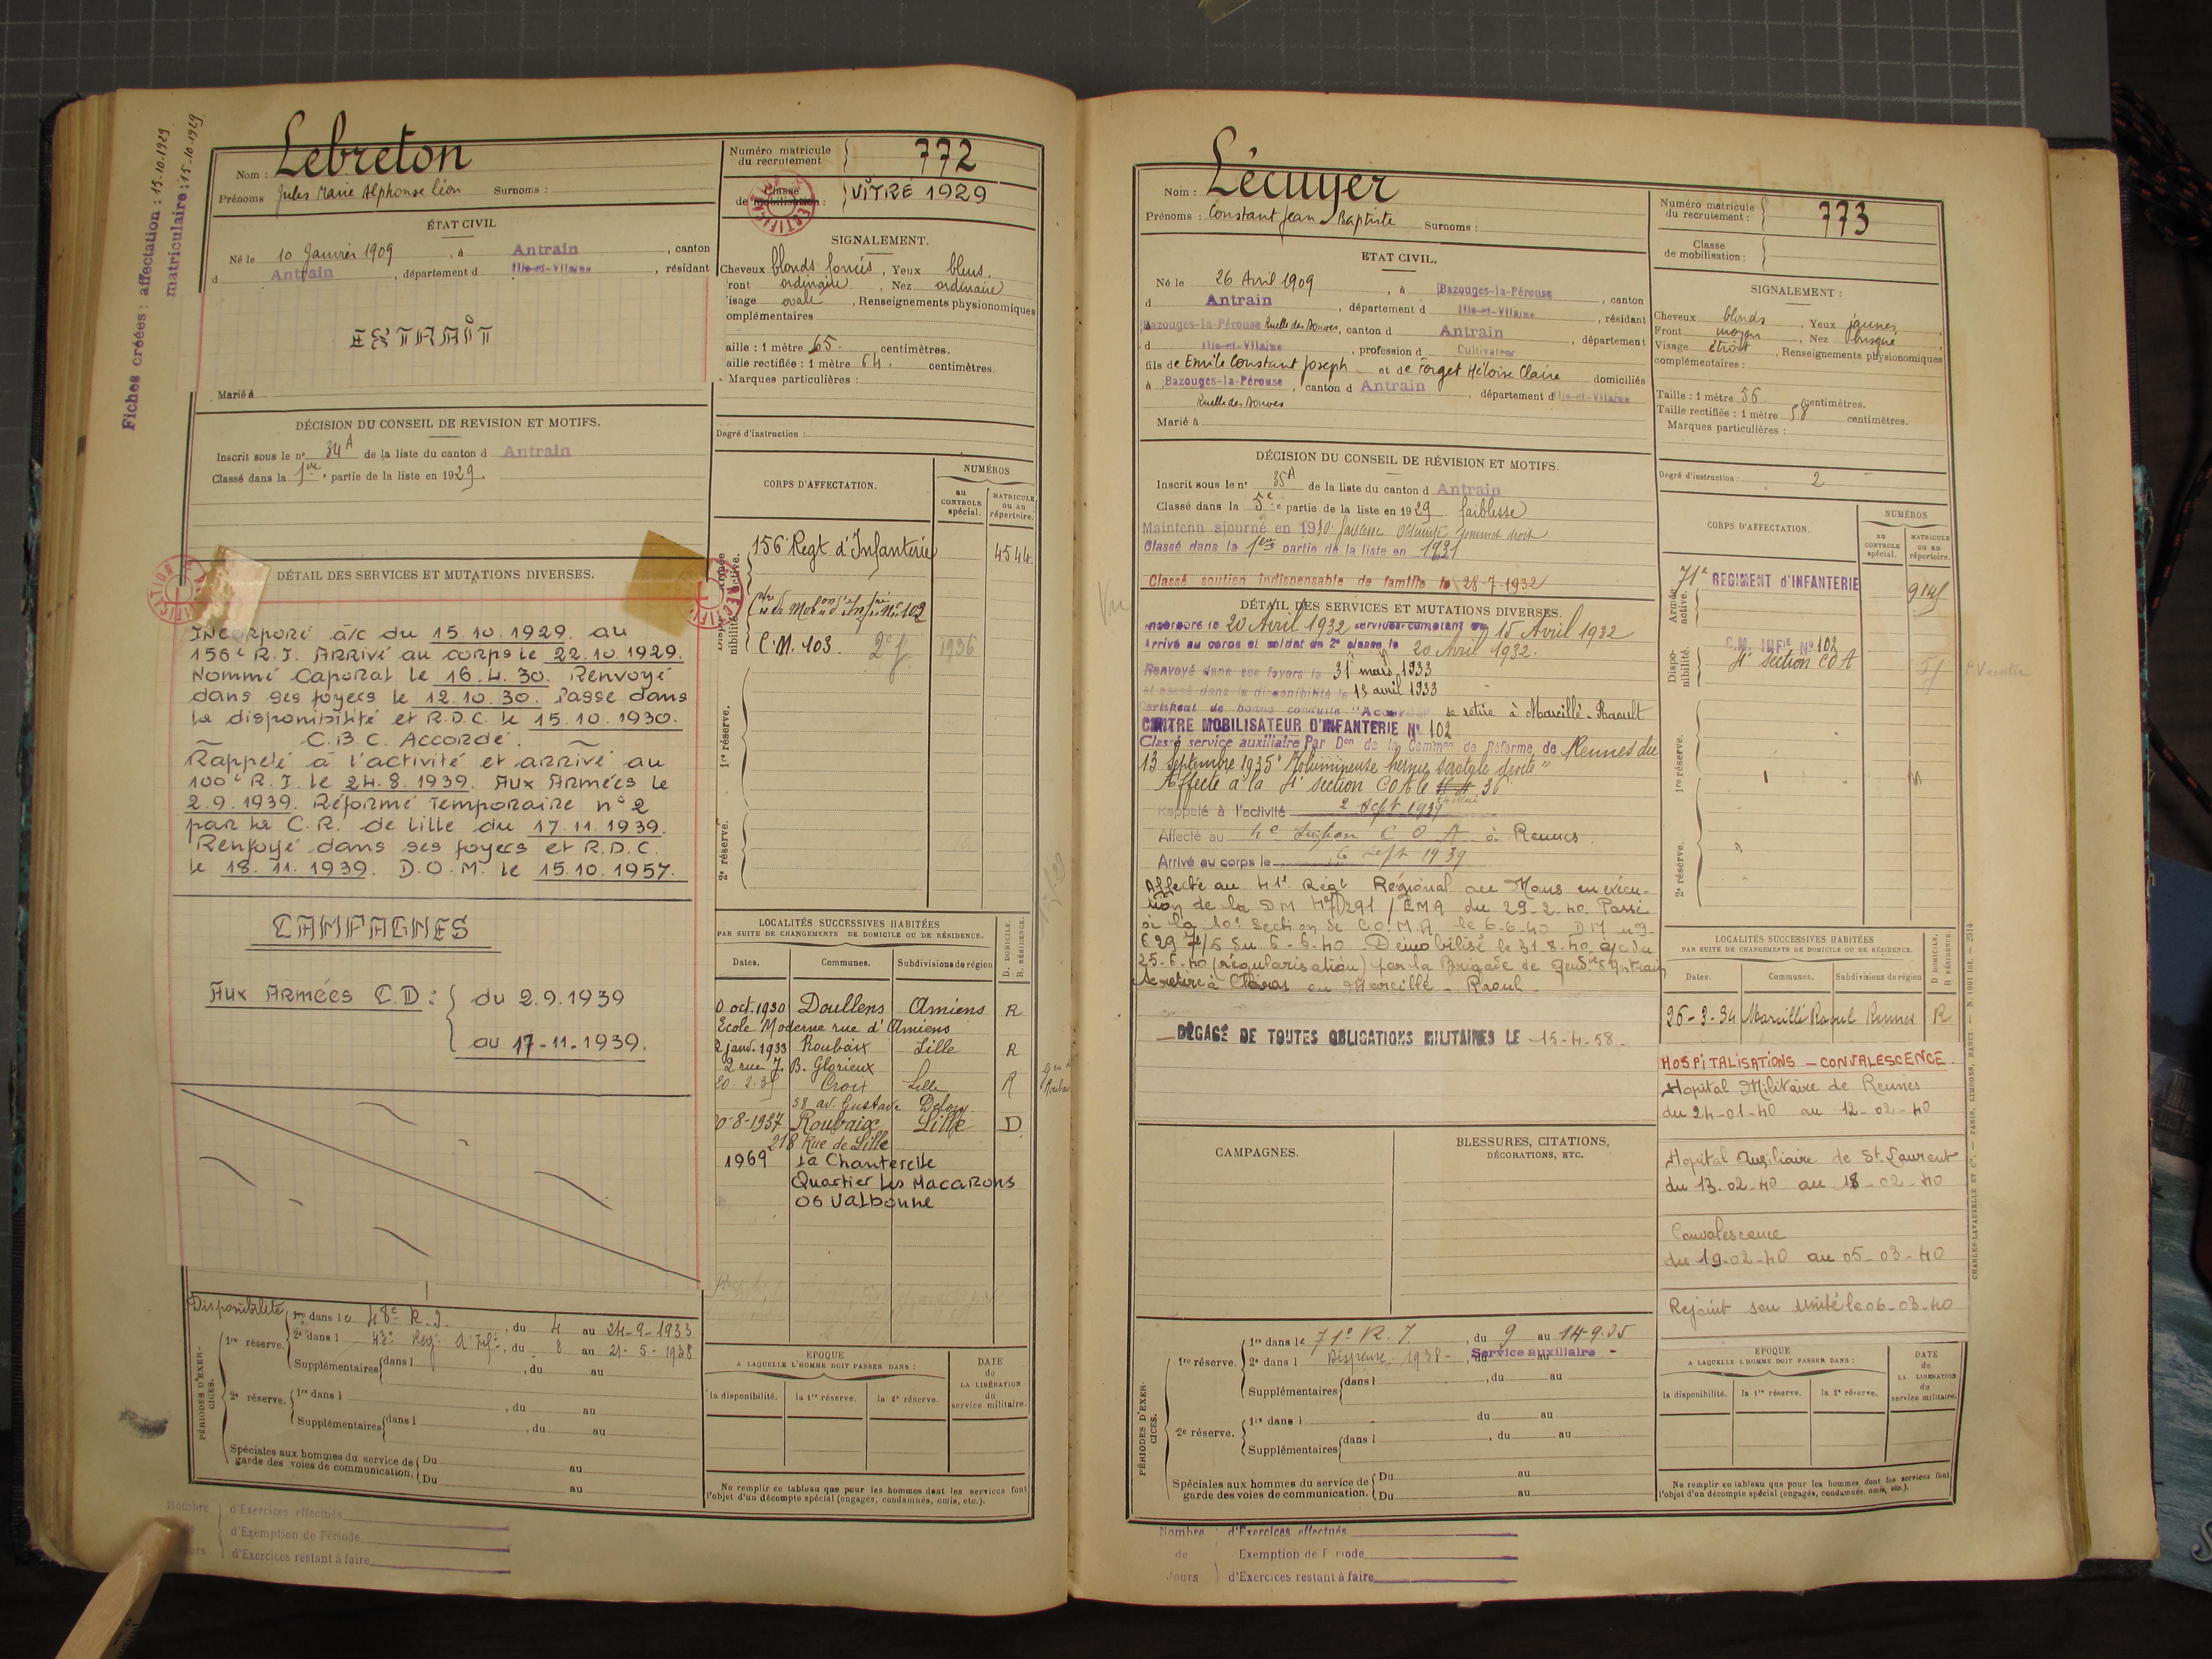 Fiches créées : affectation : 15-10-1929
matriculaire : 15-10-1929
Nom : Lebreton
Prénoms Jules Marie Alphonse Léon Surnoms :
ÉTAT CIVIL
Né le 10 Janvier 1909, à Antrain, canton
d Antrain, département d Ille-et-Vilaine, résidant
EXTRAIT
Marié à
DÉCISION DU CONSEIL DE REVISION ET MOTIFS.
Inscrit sous le n° 34 A de la liste du canton d Antrain
Classé dans la 1ere partie de la liste en 1929.
DÉTAIL DES SERVICES ET MUTATIONS DIVERSES.
Incorporé à/c du 15.10.1929. au
156e R.I. Arrivé au corps le 22.10.1929.
Nommé Caporal le 16.4.30. Renvoyé
dans ses foyers le 12.10.30. Passe dans
la disponibilité et R.D.C. le 15.10.1930.
C.B.C. Accordé.
Rappelé à l'activité et arrivé au
100e R.I. le 24.8.1939. Aux Armées le
2.9.1939. Réformé Temporaire n° 2
par la C.R. de Lille du 17.11.1939.
Renvoyé dans ses foyers et R.D.C.
le 18.11.1939. D.O.M. le 15.10.1957.
CAMPAGNES
Aux Armées C.D : { du 2.9.1939
au 17-11-1939.
Disponibilité
PÉRIODES D'EXERCICES.
1re réserve. 1re dans le 48e R.I., du 4 au 24-9-1933
2e dans l 43e Reg. d'Inf., du 8 au 21-5-1938
Supplémentaires dans l , du au
2e réserve. 1re dans l , du au
Supplémentaires dans l , du au
Spéciales aux hommes du service de garde des voies de communication. Du au
Du au
Nombre de Jours
d'Exercices effectués
d'Exemption de Période
d'Exercices restant à faire
Numéro matricule du recrutement 772
Classe de mobilisation : VITRÉ 1929
SIGNALEMENT.
Cheveux blonds foncés, Yeux bleus.
ront ordinaire, Nez ordinaire
isage ovale, Renseignements physionomiques
omplémentaires
aille : 1 mètre 65. centimètres.
aille rectifiée : 1 mètre 64. centimètres.
Marques particulières :
Degré d'instruction :
CORPS D'AFFECTATION.
NUMÉROS
AU CONTROLE spécial.
MATRICULE ou au répertoire.
156e Regt d'Infanterie 4544
Ctre de Mobon d'Infrie N° 102
C.M. 103. 1936
1re réserve.
2e réserve.
LOCALITÉS SUCCESSIVES HABITÉES
PAR SUITE DE CHANGEMENTS DE DOMICILE OU DE RÉSIDENCE.
D. DOMICILE.
R. RÉSIDENCE.
Dates. Communes. Subdivisions de région
0 oct. 1930 Doullens Amiens R
Ecole Moderne rue d'Amiens
2 janv. 1933 Roubaix Lille R
2 rue J. B. Glorieux
Croix Lille R
58 av. Gustave Delory
0-8-1937 Roubaix Lille D
218 Rue de Lille
1969 La Chanterelle
Quartier Les Macarons
06 Valbonne
EPOQUE
A LAQUELLE L'HOMME DOIT PASSER DANS :
DATE de LA LIBÉRATION du service militaire.
la disponibilité. la 1re réserve. la 2e réserve.
Ne remplir ce tableau que pour les hommes dont les services font
l'objet d'un décompte spécial (engagés, condamnés, omis, etc.).
Nom : Lécuyer
Prénoms : Constant Jean Baptiste Surnoms :
ETAT CIVIL.
Né le 26 Avril 1909, à Bazouges-la-Pérouse, canton
d Antrain, département d Ille-et-Vilaine, résidant
Bazouges-la-Pérouse Ruelle des Douves, canton d Antrain, département
d Ille-et-Vilaine, profession d Cultivateur
fils de Emile Constant Joseph et de Forget Héloïse Claire domiciliés
à Bazouges-la-Pérouse, canton d Antrain, département d Ille-et-Vilaine
Ruelle des Douves
Marié à
DÉCISION DU CONSEIL DE RÉVISION ET MOTIFS.
Inscrit sous le n° 35 A de la liste du canton d Antrain
Classé dans la 5e partie de la liste en 1929 faiblesse
Maintenu ajourné en 1930 faiblesse sommet droit
Classé dans la 1ere partie de la liste en 1931
Classé soutien indispensable de famille le 28-7-1932
DÉTAIL DES SERVICES ET MUTATIONS DIVERSES.
Incorporé le 20 Avril 1932 services comptent du 15 Avril 1932
Arrivé au corps et soldat de 2e classe le 20 Avril 1932.
Renvoyé dans ses foyers le 31 mars 1933
et passé dans la disponibilité le 15 avril 1933
Certificat de bonne conduite "Accordé" se retire à Marcillé-Raoult
CENTRE MOBILISATEUR D'INFANTERIE N° 102
Classé service auxiliaire Par Don de la Common de Réforme de Rennes du
13 Septembre 1935 "Volumineuse hernie scrotale droite"
Affecté à la 4e section COA le 36
Rappelé à l'activité 2 Sept 1939
Affecté au 4e Section C O A à Rennes
Arrivé au corps le 6 Sept 1939
Affecté au 41e Régt Régional au Mans en exécu-
tion de la DM /EMA du 29-2-40. Passé
à la 10e Section de C.O.M.A. le 6-6-40 DM n°
629 7/5 du 6-6-40. Démobilisé le 31.8.40, à/c du
25-6-40 (régularisation) par la Brigade de Gendie d'Antrain
se retire à en Marcillé-Raoul
DÉGAGÉ DE TOUTES OBLIGATIONS MILITAIRES LE 15-4-58.
CAMPAGNES.
BLESSURES, CITATIONS, DÉCORATIONS, ETC.
PÉRIODES D'EXERCICES.
1re réserve. 1re dans le 71e R.I., du 9 au 14-9-35
2e dans l Dispense 1938 - , du au Service auxiliaire -
Supplémentaires dans l , du au
2e réserve. 1re dans l du au
Supplémentaires dans l , du au
Spéciales aux hommes du service de garde des voies de communication. Du au
Du au
Nombre de Jours
d'Exercices effectués
Exemption de Période
d'Exercices restant à faire
Numéro matricule du recrutement : 773
Classe de mobilisation :
SIGNALEMENT :
Cheveux blonds, Yeux jaunes,
Front moyen, Nez busqué
Visage étroit, Renseignements physionomiques
complémentaires :
Taille : 1 mètre 56. centimètres.
Taille rectifiée : 1 mètre 58 centimètres.
Marques particulières :
Degré d'instruction : 2
CORPS D'AFFECTATION.
NUMÉROS
AU CONTROLE spécial.
MATRICULE ou au répertoire.
Armée active.
71e RÉGIMENT d'INFANTERIE
Disponibilité.
C.M. INFIE N° 102
4e Section COA
1re réserve.
2e réserve.
LOCALITÉS SUCCESSIVES HABITÉES
PAR SUITE DE CHANGEMENTS DE DOMICILE OU DE RÉSIDENCE.
D DOMICILE.
R RÉSIDENCE.
Dates. Communes. Subdivisions de région
26-3-34 Marcillé Raoul Rennes R
HOSPITALISATIONS - CONVALESCENCE.
Hopital Militaire de Rennes
du 24-01-40 au 12-02-40
Hopital Auxiliaire de St Laurent
du 13-02-40 au 18-02-40
Convalescence
du 19-02-40 au 05-03-40
Rejoint son unité le 06-03-40
EPOQUE
A LAQUELLE L'HOMME DOIT PASSER DANS :
DATE de LA LIBÉRATION du service militaire.
la disponibilité. la 1re réserve. la 2e réserve.
Ne remplir ce tableau que pour les hommes dont les services font
l'objet d'un décompte spécial (engagés, condamnés, omis, etc.).
CHARLES-LAVAUZELLE ET Cie. — PARIS, LIMOGES, NANCY.